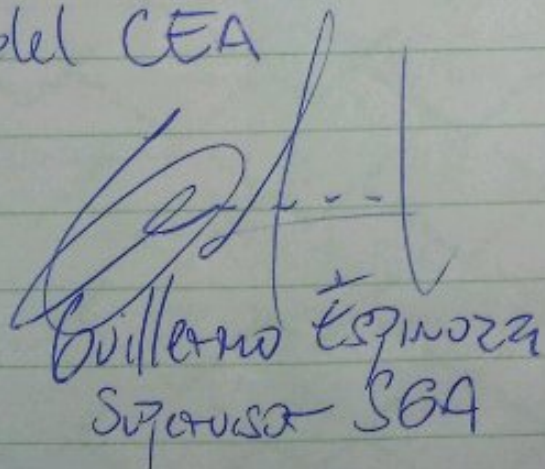 del CEA
Guillermo Espinoza
Supervisor SGA